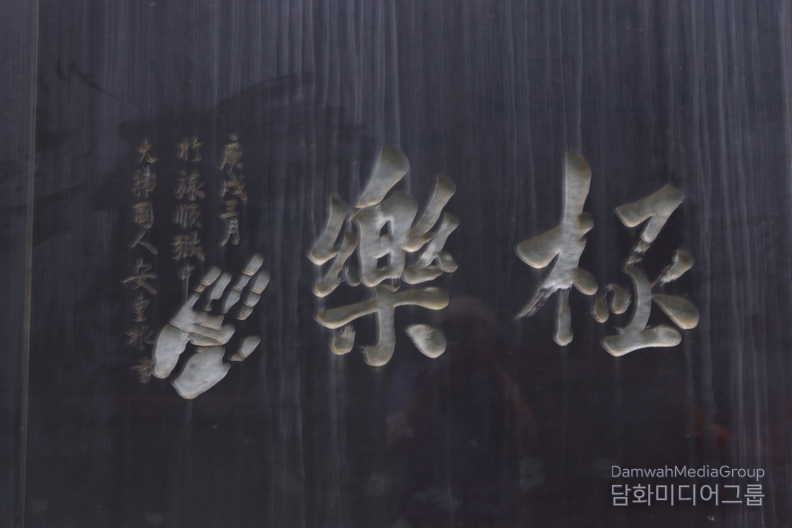 極樂
庚戌三月
於旅順獄中
大韓國人 安重根 書
DamwahMediaGroup
담화미디어그룹